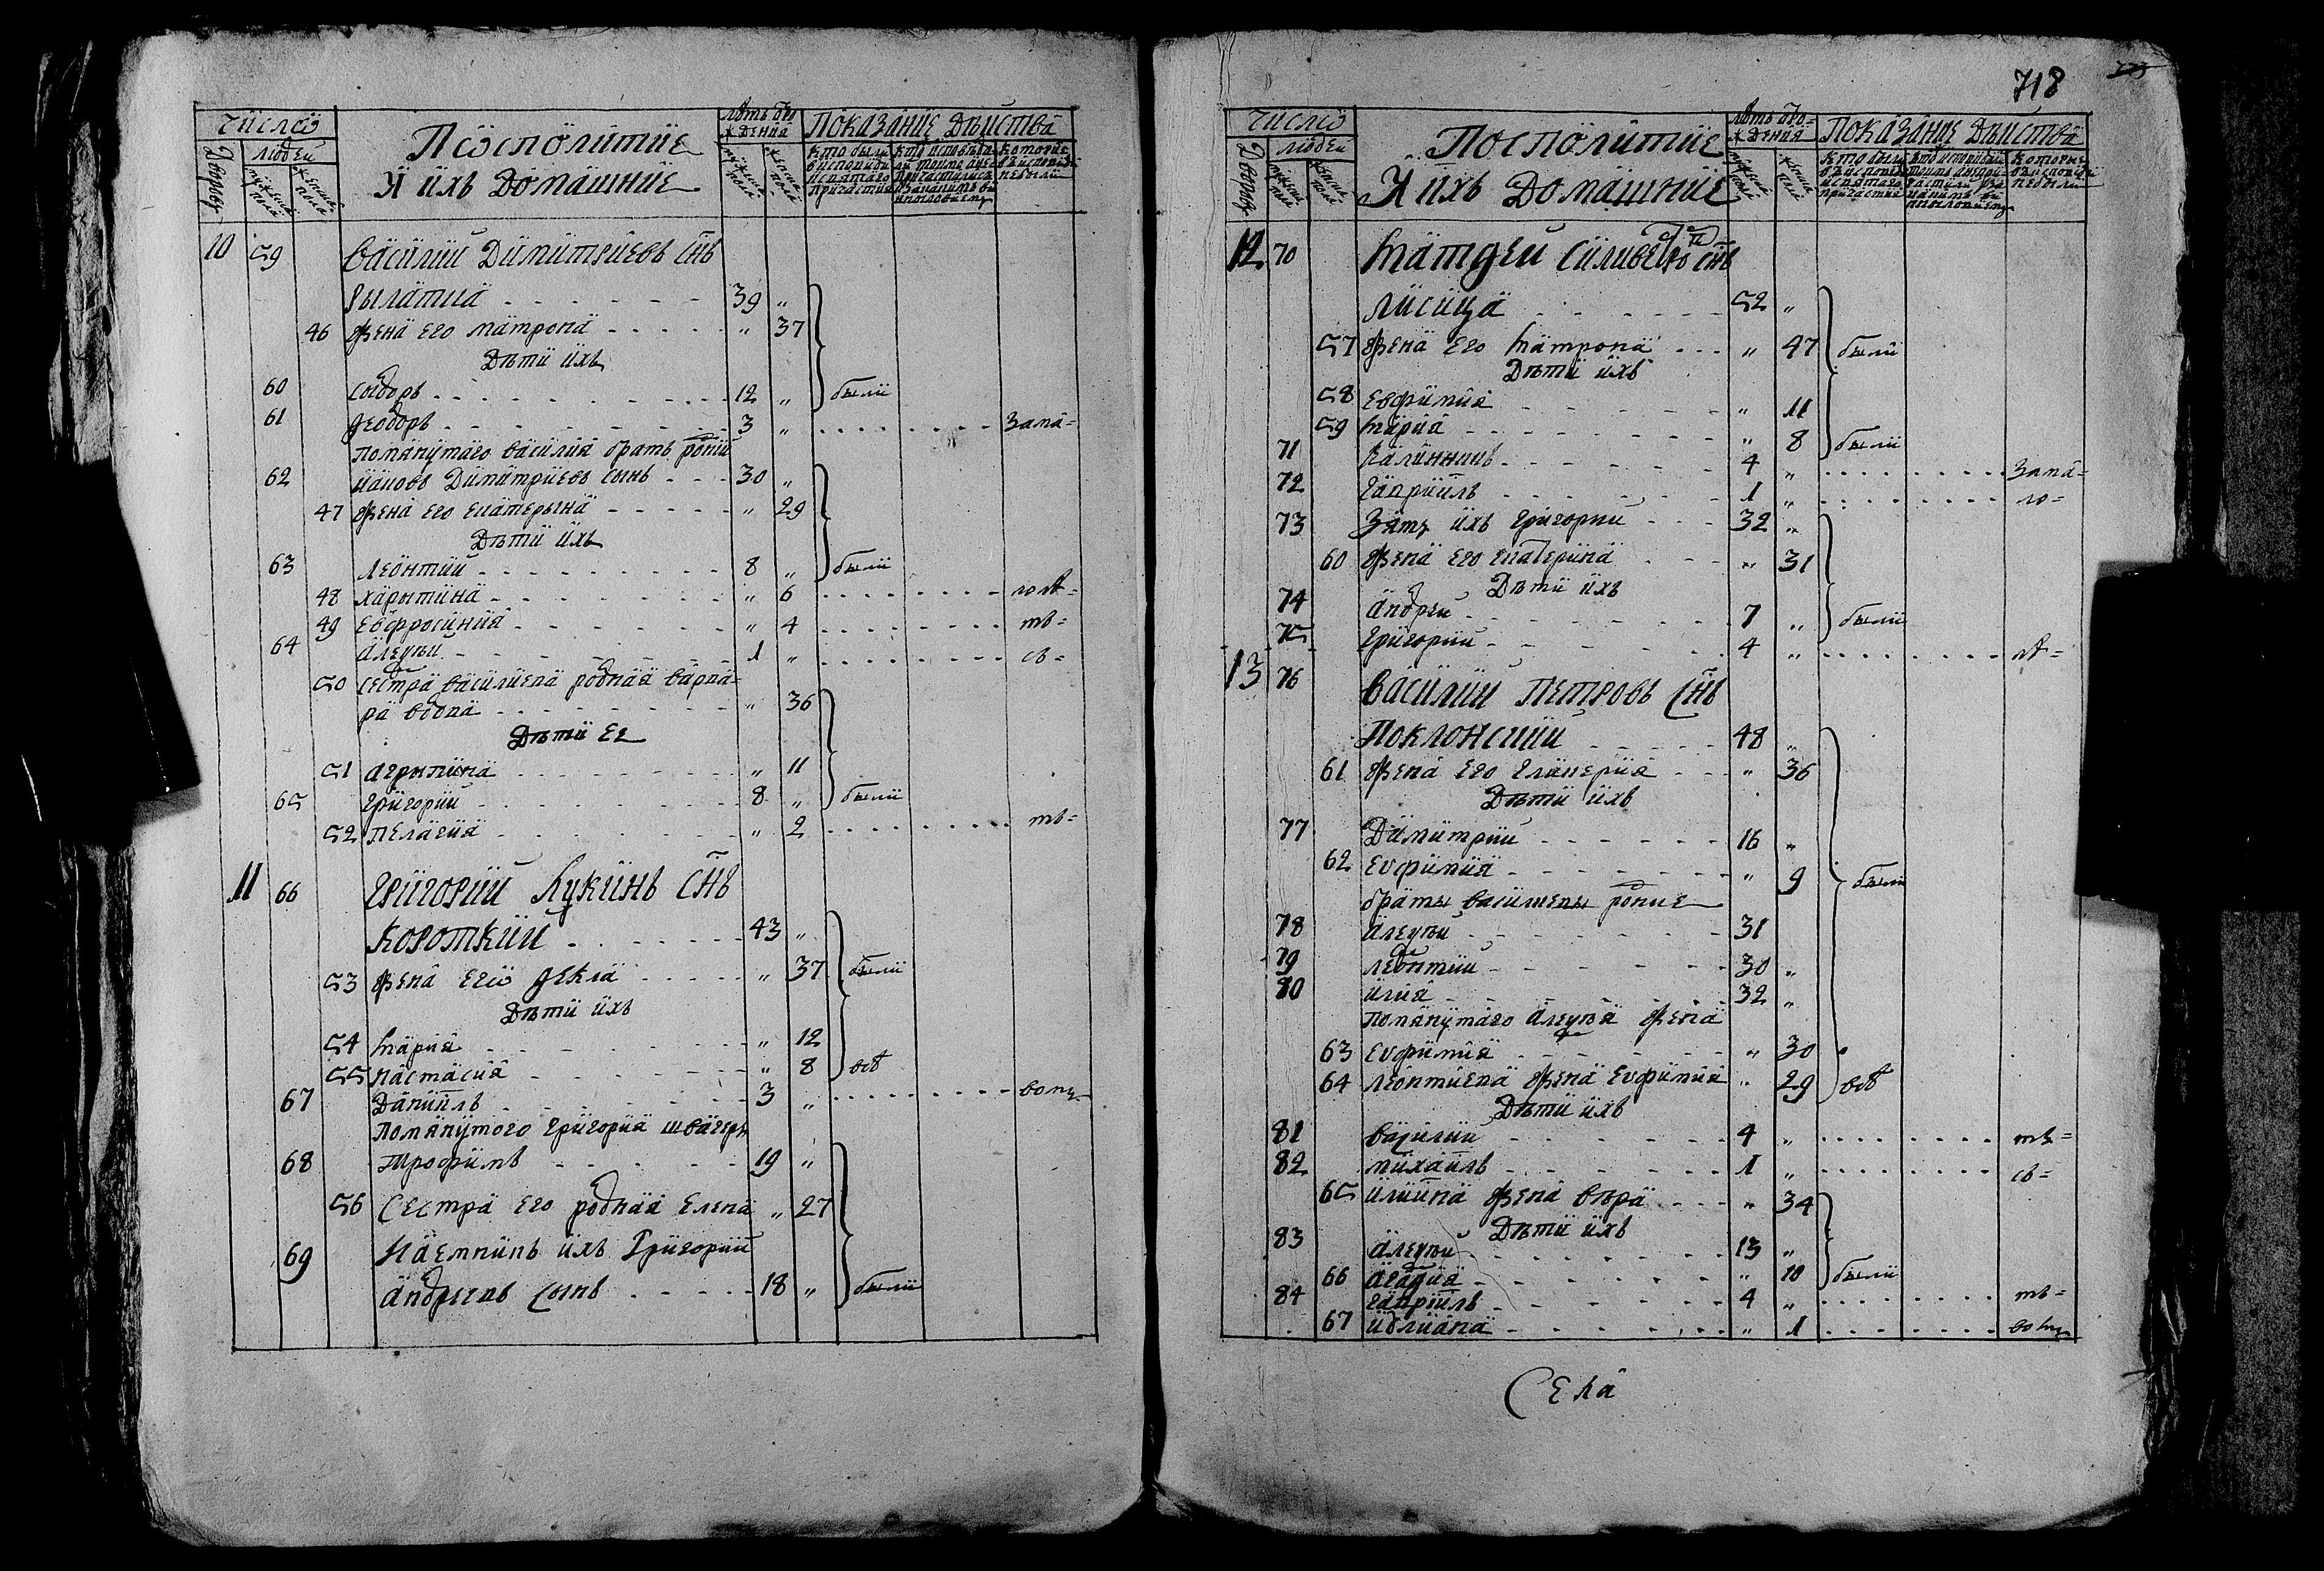 число
Посполитие
лѣтъ рож
дения
Показание Дѣиства
Дворов
людей
И ихъ Домашние
мужеска пола
женска пола
кто были в исповѣди и святаго причастия
которие в исповѣди не были
10 59 Василий Димитриевъ снъ
39 "
46 жена его матрона " 37
Дѣти ихъ
60 Сыдоръ 12 " были
61 Ѳеодоръ 3 " за ма=
помянутаго василия братъ родній
62 иаковъ Димитриевъ сынъ 30 "
47 жена его екатерына " 29
Дѣти ихъ
63 Леонтий 8 " были
48 харытина " 6 лолѣ=
49 Евфросиния " 4 тъ=
64 алеѯѣй 1 " ст=
50 сестра василиева родная варва=
ра вдова " 36
Дѣти ее
51 агрыпина " 11
65 григорий 8 " были
52 пелагия " 2 тъ=
11 66 Григорий Лукинъ снъ
короткий 43 "
53 жена его ѳекла " 37 были
Дѣти ихъ
54 мария " 12
55 настасия " 8 всѣ
67 Даниилъ 3 "
помянутого григория швагеръ
68 трофимъ 19 "
56 Сестра его родная Елена " 27
69 Наемникъ ихъ Григорий
андрѣевъ сынъ 18 " были
718
число
Посполитие
лѣтъ рож=
дения
Показание Дѣиства
Дворов
людей
И ихъ Домашние
мужеска пола
женска пола
кто были в исповѣди и святаго причастия
которие в исповѣди не были
12 70 Матѳей Силивестровъ снъ
лисица 52 "
57 жена его матрона " 47 были
Дѣти ихъ
58 евфимия " 11
59 мария " 8 были
71 калинникъ 4 " за ма=
72 гавриилъ 1 " ло=
73 зять ихъ григорий 32 "
60 жена его екатерина " 31
Дѣти ихъ
74 андрей 7 " были
75 григорий 4 " лѣ=
13 76 Василий Петровъ снъ
Поклонский 48 "
61 жена его гликерия " 36
Дѣти ихъ
77 Димитрий 16 "
62 евфимия " 9 были
браты василиевы родние
78 алеѯѣй 31
79 леонтий 30 "
80 илия 32 "
помянутаго алеѯѣя жена
63 евфимия " 30
64 леонтиева жена евфимия " 29 всѣ
Дѣти ихъ
81 василий 4 " тъ=
82 михаилъ 1 " ст=
65 илиина жена вѣра " 34
Дѣти ихъ
83 алеѯѣй 13 "
66 агафия " 10 были
84 гавриилъ 4 " тъ=
67 иулиана " 1
Села